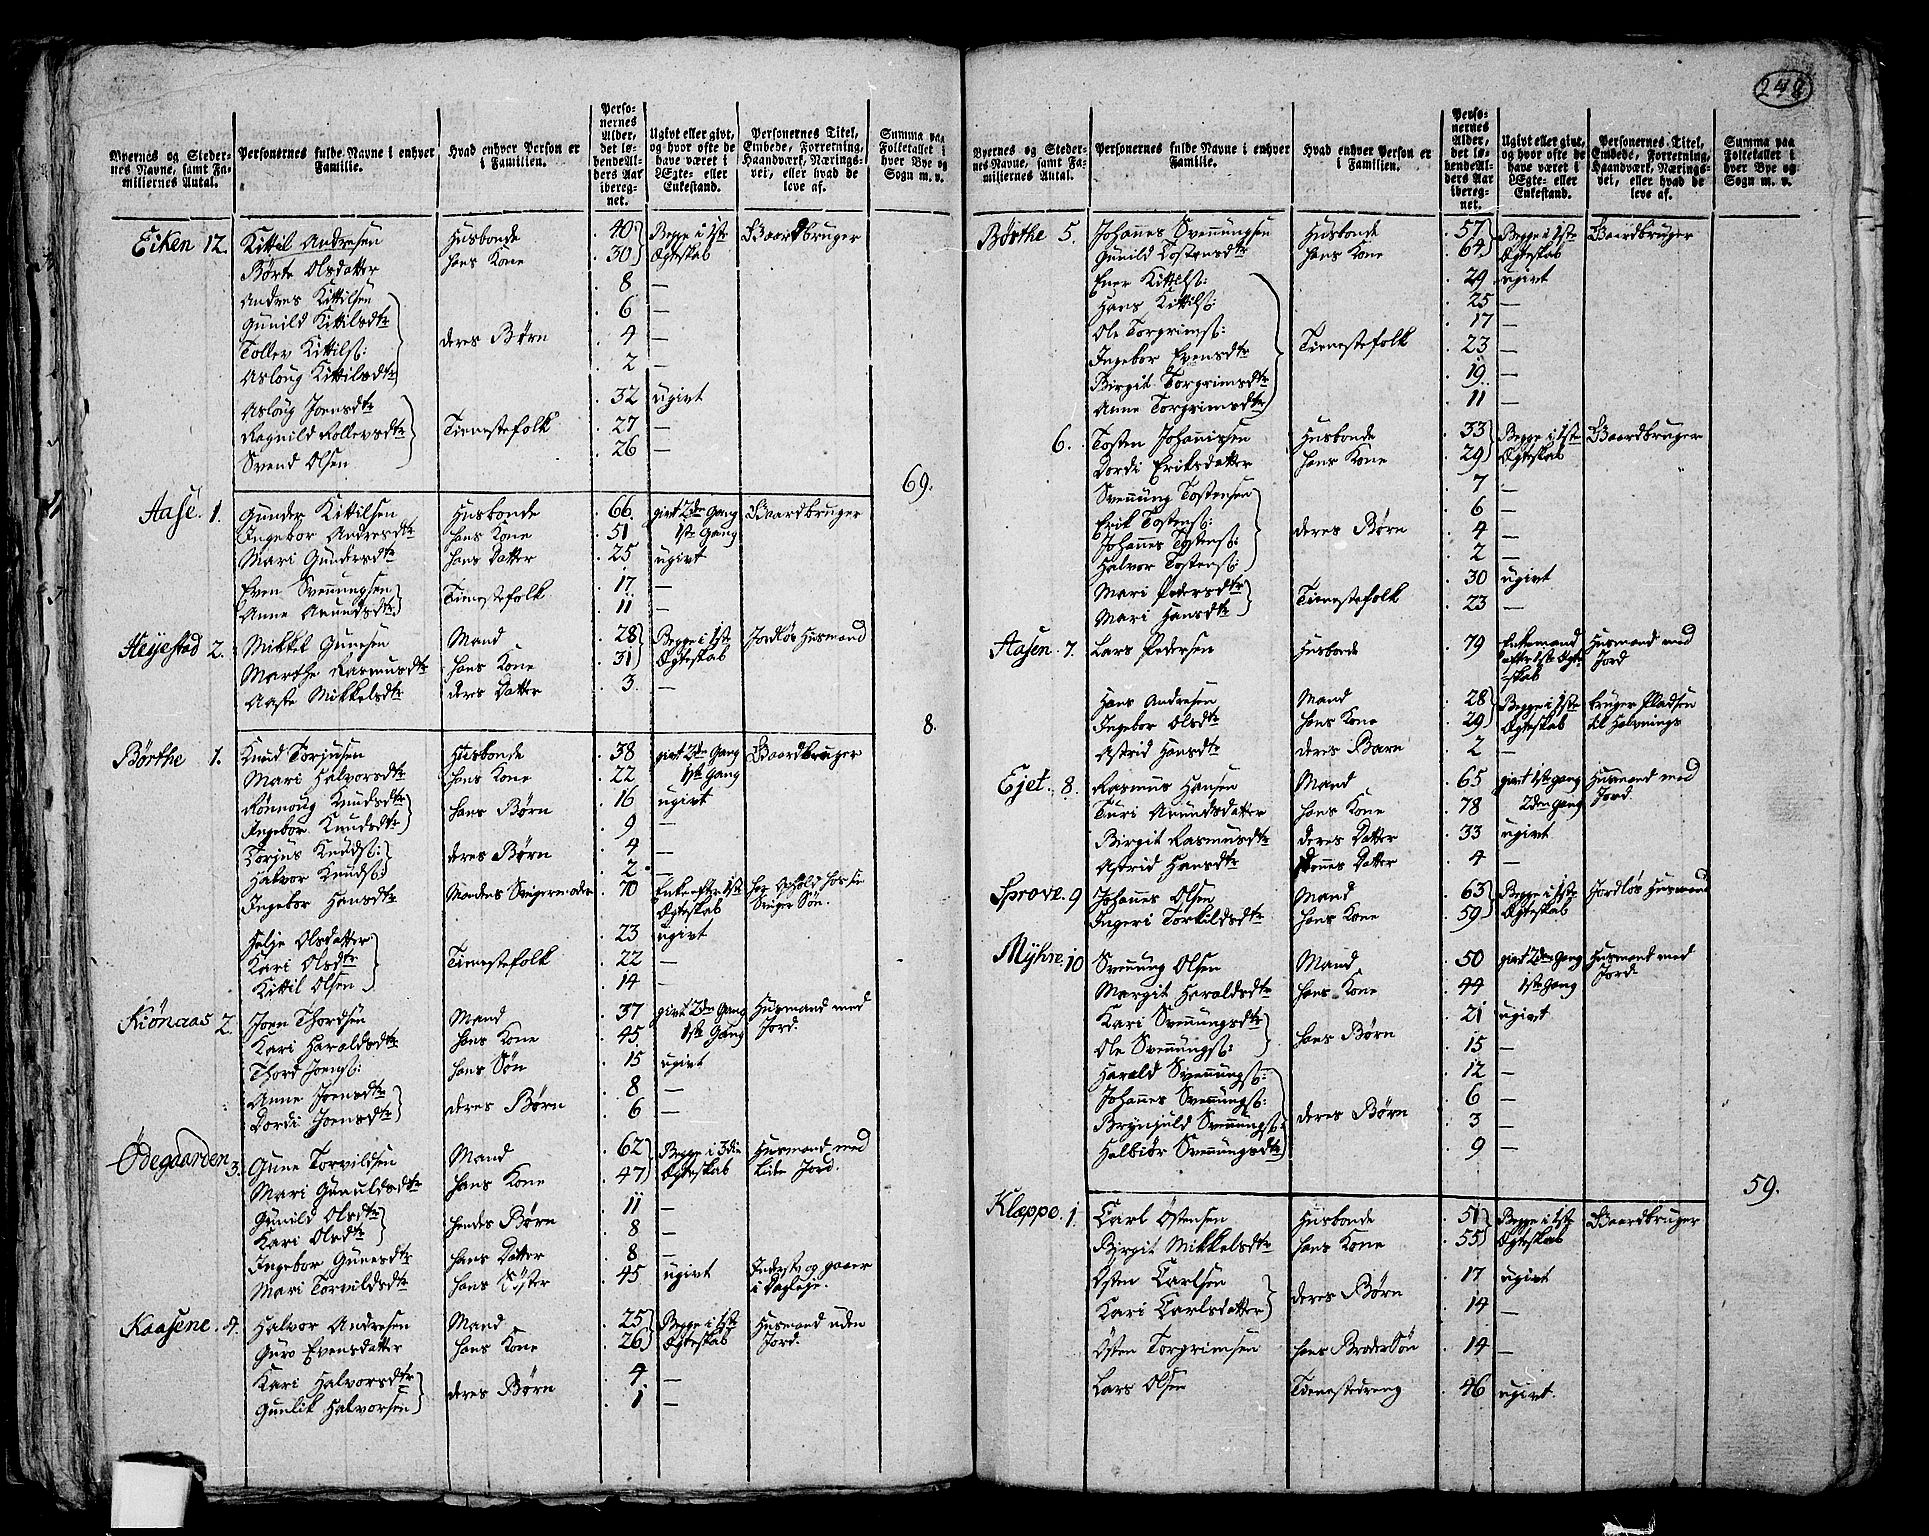 248
Byernes og Stedernes Navne, samt Familiernes Antal. Personernes fulde Navne i enhver Familie. Hvad enhver Person er i Familien. Personernes Alder, det løbende Alders Aar iberegnet. Ugivt eller givt, og hvor ofte de have været i Egte- eller Enkestand. Personernes Titel, Embede, Forretning, Haandværk, Næringsvei, eller hvad de leve af. Summa paa Folketallet i hver Bye og Sogn m. v.
Eiken 12. Kittil Andresen Husbonde 40 Begge i 1ste Gaardbruger
Børte Olsdatter hans Kone 30 Ægteskab
Andres Kittilsen 8 —
Gunild Kittilsdtr 6 —
Tollev Kittils: deres Børn 4 —
Asloug Kittilsdtr 2 —
Asloug Joensdtr 32 ugivt
Ragnild Rollevsdtr Tienestefolk 27 —
Svend Olsen 26 —
69.
Aase. 1. Gunder Kittilsen Husbonde 66 givt 2den Gang Gaardbruger
Ingebor Andresdtr hans Kone 51 1ste Gang
Mari Gundersdtr hans Datter 25 ugivt
Even Svennungsen 17 —
Anne Amundsdtr Tienestefolk 11 —
Heyestad 2. Mikkel Gunesen Mand 28 Begge i 1ste Jordløs Husmand
Marthe Rasmusdtr hans Kone 31 Ægteskab
Aaste Mikkelsdtr deres Datter 3 —
8.
Børthe 1. Knud Torjusen Husbonde 38 givt 2den Gang Gaardbruger
Mari Halvorsdtr hans Kone 22 1ste Gang
Rønnoug Knudsdtr hans Børn 16 ugivt
Ingebor Knudsdtr 9 —
Torjus Knuds: deres Børn 4 —
Halvor Knuds: 2 —
Ingebor Hansdtr Mandens Svigermoder 70 Enke efter 1ste Ægteskab har Ophold hos sin Sviger Søn.
Helje Olsdatter 23 ugivt
Kari Olsdtr Tienestefolk 22 —
Kittil Olsen 14 —
Kiønaas 2. Joen Thordsen Mand 37 givt 2den Gang Husmand med
Kari Haraldsdtr hans Kone 45 1ste Gang Jord.
Thord Joens: hans Søn 15 ugivt
Anne Joensdtr 8 —
Dordi Joensdtr deres Børn 6 —
Ødegaarden 3. Gune Torvildsen Mand 62 Begge i 3die Husmand med
Mari Gunuldsdtr hans Kone 47 Ægteskab lidt Jord.
Gunild Olsdtr 11 —
Kari Olsdtr hendes Børn 8 —
Ingebor Gunesdtr hans Datter 8 —
Mari Torvildsdtr hans Søster 45 ugivt Inderst og gaaer i Dagleje.
Kaasene 4. Halvor Andresen Mand 25 Begge i 1ste Husmand uden
Guro Evensdatter hans Kone 26 Ægteskab Jord.
Kari Halvorsdtr 4 —
Gunlik Halvorsen deres Børn 1 —
Byernes og Stedernes Navne, samt Familiernes Antal. Personernes fulde Navne i enhver Familie. Hvad enhver Person er i Familien. Personernes Alder, det løbende Alders Aar iberegnet. Ugivt eller givt, og hvor ofte de have været i Egte- eller Enkestand. Personernes Titel, Embede, Forretning, Haandværk, Næringsvei, eller hvad de leve af. Summa paa Folketallet i hver Bye og Sogn m. v.
Børthe 5. Johannes Svennungsen Husbonde 57 Begge i 1ste Gaardbruger
Gunild Tostensdtr hans Kone 64 Ægteskab
Ener Kittils: 29 ugivt
Hans Kittils: 25 —
Ole Torgrims: 17 —
Ingebor Evensdtr Tienestefolk 23 —
Birgit Torgrimsdtr 19 —
Anne Torgrimsdtr 11 —
6. Tosten Johannissen Husbonde 33 Begge i 1ste Gaardbruger
Dordi Eriksdatter hans Kone 29 Ægteskab
Svennung Tostensen 7 —
Erik Tostens: 6 —
Johannes Tostens: deres Børn 4 —
Halvor Tostens: 2 —
Mari Pedersdtr 30 ugivt
Mari Hansdtr Tienestefolk 23 —
Aasen 7. Lars Pedersen Husbonde 79 Enkemand efter 1ste Ægteskab Husmand med Jord
Hans Andresen Mand 28 Begge i 1ste bruger Pladsen
Ingebor Olsdtr hans Kone 29 Ægteskab til Halvnings
Astrid Hansdtr deres Barn 2 —
Ejet 8. Rasmus Hansen Mand 65 givt 1ste Gang Husmand med
Turi Amundsdatter hans Kone 78 2den Gang Jord.
Birgit Rasmusdtr deres Datter 33 ugivt
Astrid Hansdtr Datter 4 —
Sprove. 9 Johannes Olsen Mand 63 Begge i 1ste Jordløs Husmand
Ingeri Torkildsdtr hans Kone 59 Ægteskab
Myhre 10 Svennung Olsen Mand 50 givt 2den Gang Husmand med
Margit Haraldsdtr hans Kone 44 1ste Gang Jord.
Kari Svennungsdtr 21 ugivt
Ole Svennungs: hans Børn 15 —
Harald Svennungs: 12 —
Johannes Svennungs: 6 —
Brynjuld Svennungs: deres Børn 3 —
Halbiør Svennungsdtr 9 —
59.
Kleppe. 1. Carl Østensen Husbonde 51 Begge i 1ste Gaardbruger
Birgit Mikkelsdtr hans Kone 55 Ægteskab
Østen Carlsen 17 ugivt
Kari Carlsdatter deres Børn 14 —
Østen Torgrimsen hans Broder Søn 14 —
Lars Olsen Tienestedreng 46 ugivt.